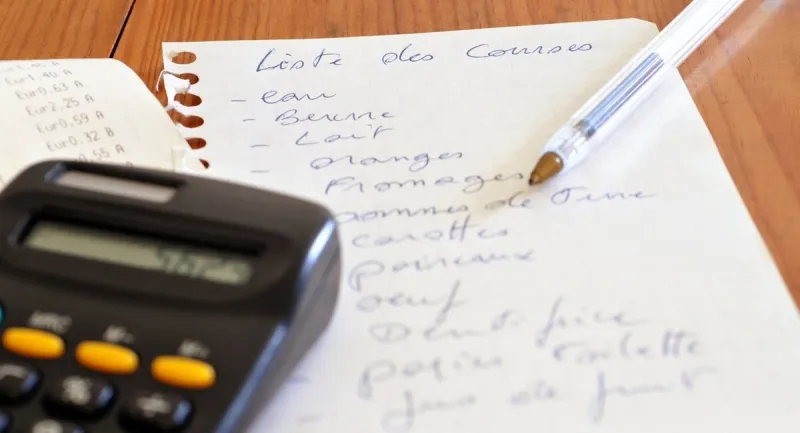 Eur1,40 A
Eur0,63 A
Eur2,25 A
Eur0,59 A
Eur0,32 B
0,55 A
Liste des Courses
- eau
- Beurre
- Lait
- oranges
Fromages
pommes de Terre
carottes
poireaux
oeuf
Dentifrice
papier toilette
- jus de fruit